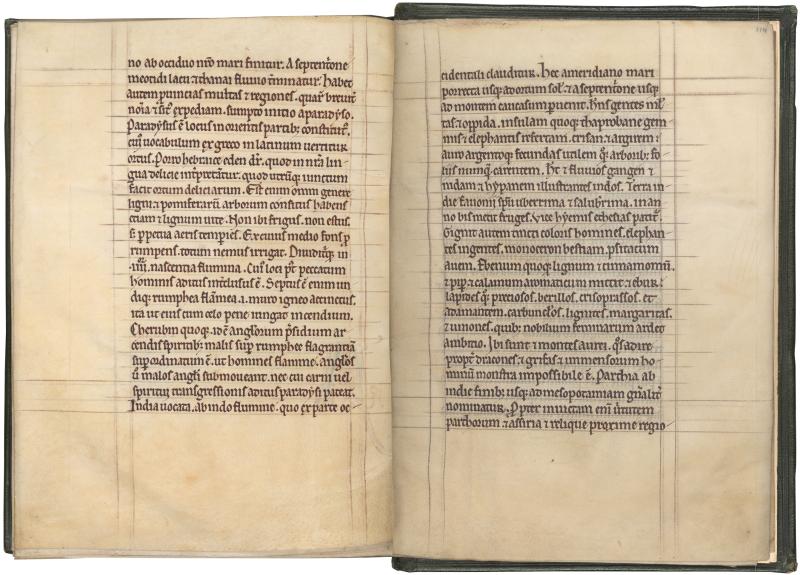 no ab occiduo nr̄o mari finitur. A septent̄one
meotidi lacu ⁊ thanai fluuio t̄minatur. Habet
autem puincias multas ⁊ regiones. quar̄ breuit̄
noīa ⁊ sit᷒ expediam. sumpto initio a paradyso.
Paradysus ē locus in orientis partib; constitut᷒.
cui᷒ uocabulum ex greco in latinum uertitur
ortus. Porro hebraice eden dr̄. quod in nr̄a lin
gua delicie int̄pretat᷒. quod utrūq; iunctum
facit ortum deliciarum. Est enim omni genere
ligni ⁊ pomiferarū arborum consitus habens
etiam ⁊ lignum uite. Non ibi frigus. non estus.
s; ꝑpetua aeris temꝑies. Ex cuius medio fons ꝓ
rumpens. totum nemus irrigat. Diuiditq; in
.iiiior. nascentia flumina. Cui᷒ loci pt̄ peccatum
hominis aditus int̄clusus ē. Septus ē enim un
diq; rumphea flāmea .i. muro igneo accinctus.
ita ut ei᷒ cum celo pene iungat incendium.
Cherubin quoq; id ē anglorum p̄sidium ar
cendis spiritib; malis suꝑ rumphee flagrantiā
suꝑ ordinatum ē. ut homines flamme. anglos
ū malos angli submoueant. nec cui carni uel
spiritui transgressionis aditus paradysi pateat.
India uocata. ab indo flumine. quo ex parte oc
cidentali clauditur. Hec a meridiano mari
porrecta usq; ad ortum sol̄. ⁊ a septent̄one usq;
ad montem caucasum ꝑuenit. Hn̄s gentes ml̄
tas. ⁊ oppida. insulam quoq; thaprobane gem
mis ⁊ elephantis refertam. crisan. ⁊ argirem.
auro argentoq; fecundas utilem q̄; arborib; fo
liis numq̄ carentem. Ht̄ ⁊ fluuios gangen ⁊
indam ⁊ hypanem illustrantes indos. Terra in
die fauonii spū uberrima ⁊ salubrima. in an
no bis metit fruges. Vice hyemis ethesias patit᷒.
Gignit autem tincti coloris homines. elephan
tes ingentes. monoceron bestiam. psitacum
auem. Ebenum quoq; lignum ⁊ cinnamomū.
⁊ piꝑ. ⁊ calamum aromaticum mittit ⁊ ebur.
lapides q; preciosos. berillos. crisoprassos. et
adamantem. carbunclos. lignites. margaritas.
⁊ uniones. quib; nobilium feminarum ardet
ambitio. Ibi sunt ⁊ montes aurei. q̄s adire
propt̄ dracones ⁊ grifas ⁊ immensorum ho
minū monstra impossibile ē. Parthia ab
indie finib; usq; ad mesopotamiam gn̄alit̄
nominatur. Ꝓpter inuictam enī ūtutem
parthorum. ⁊ assiria ⁊ relique proxime regio